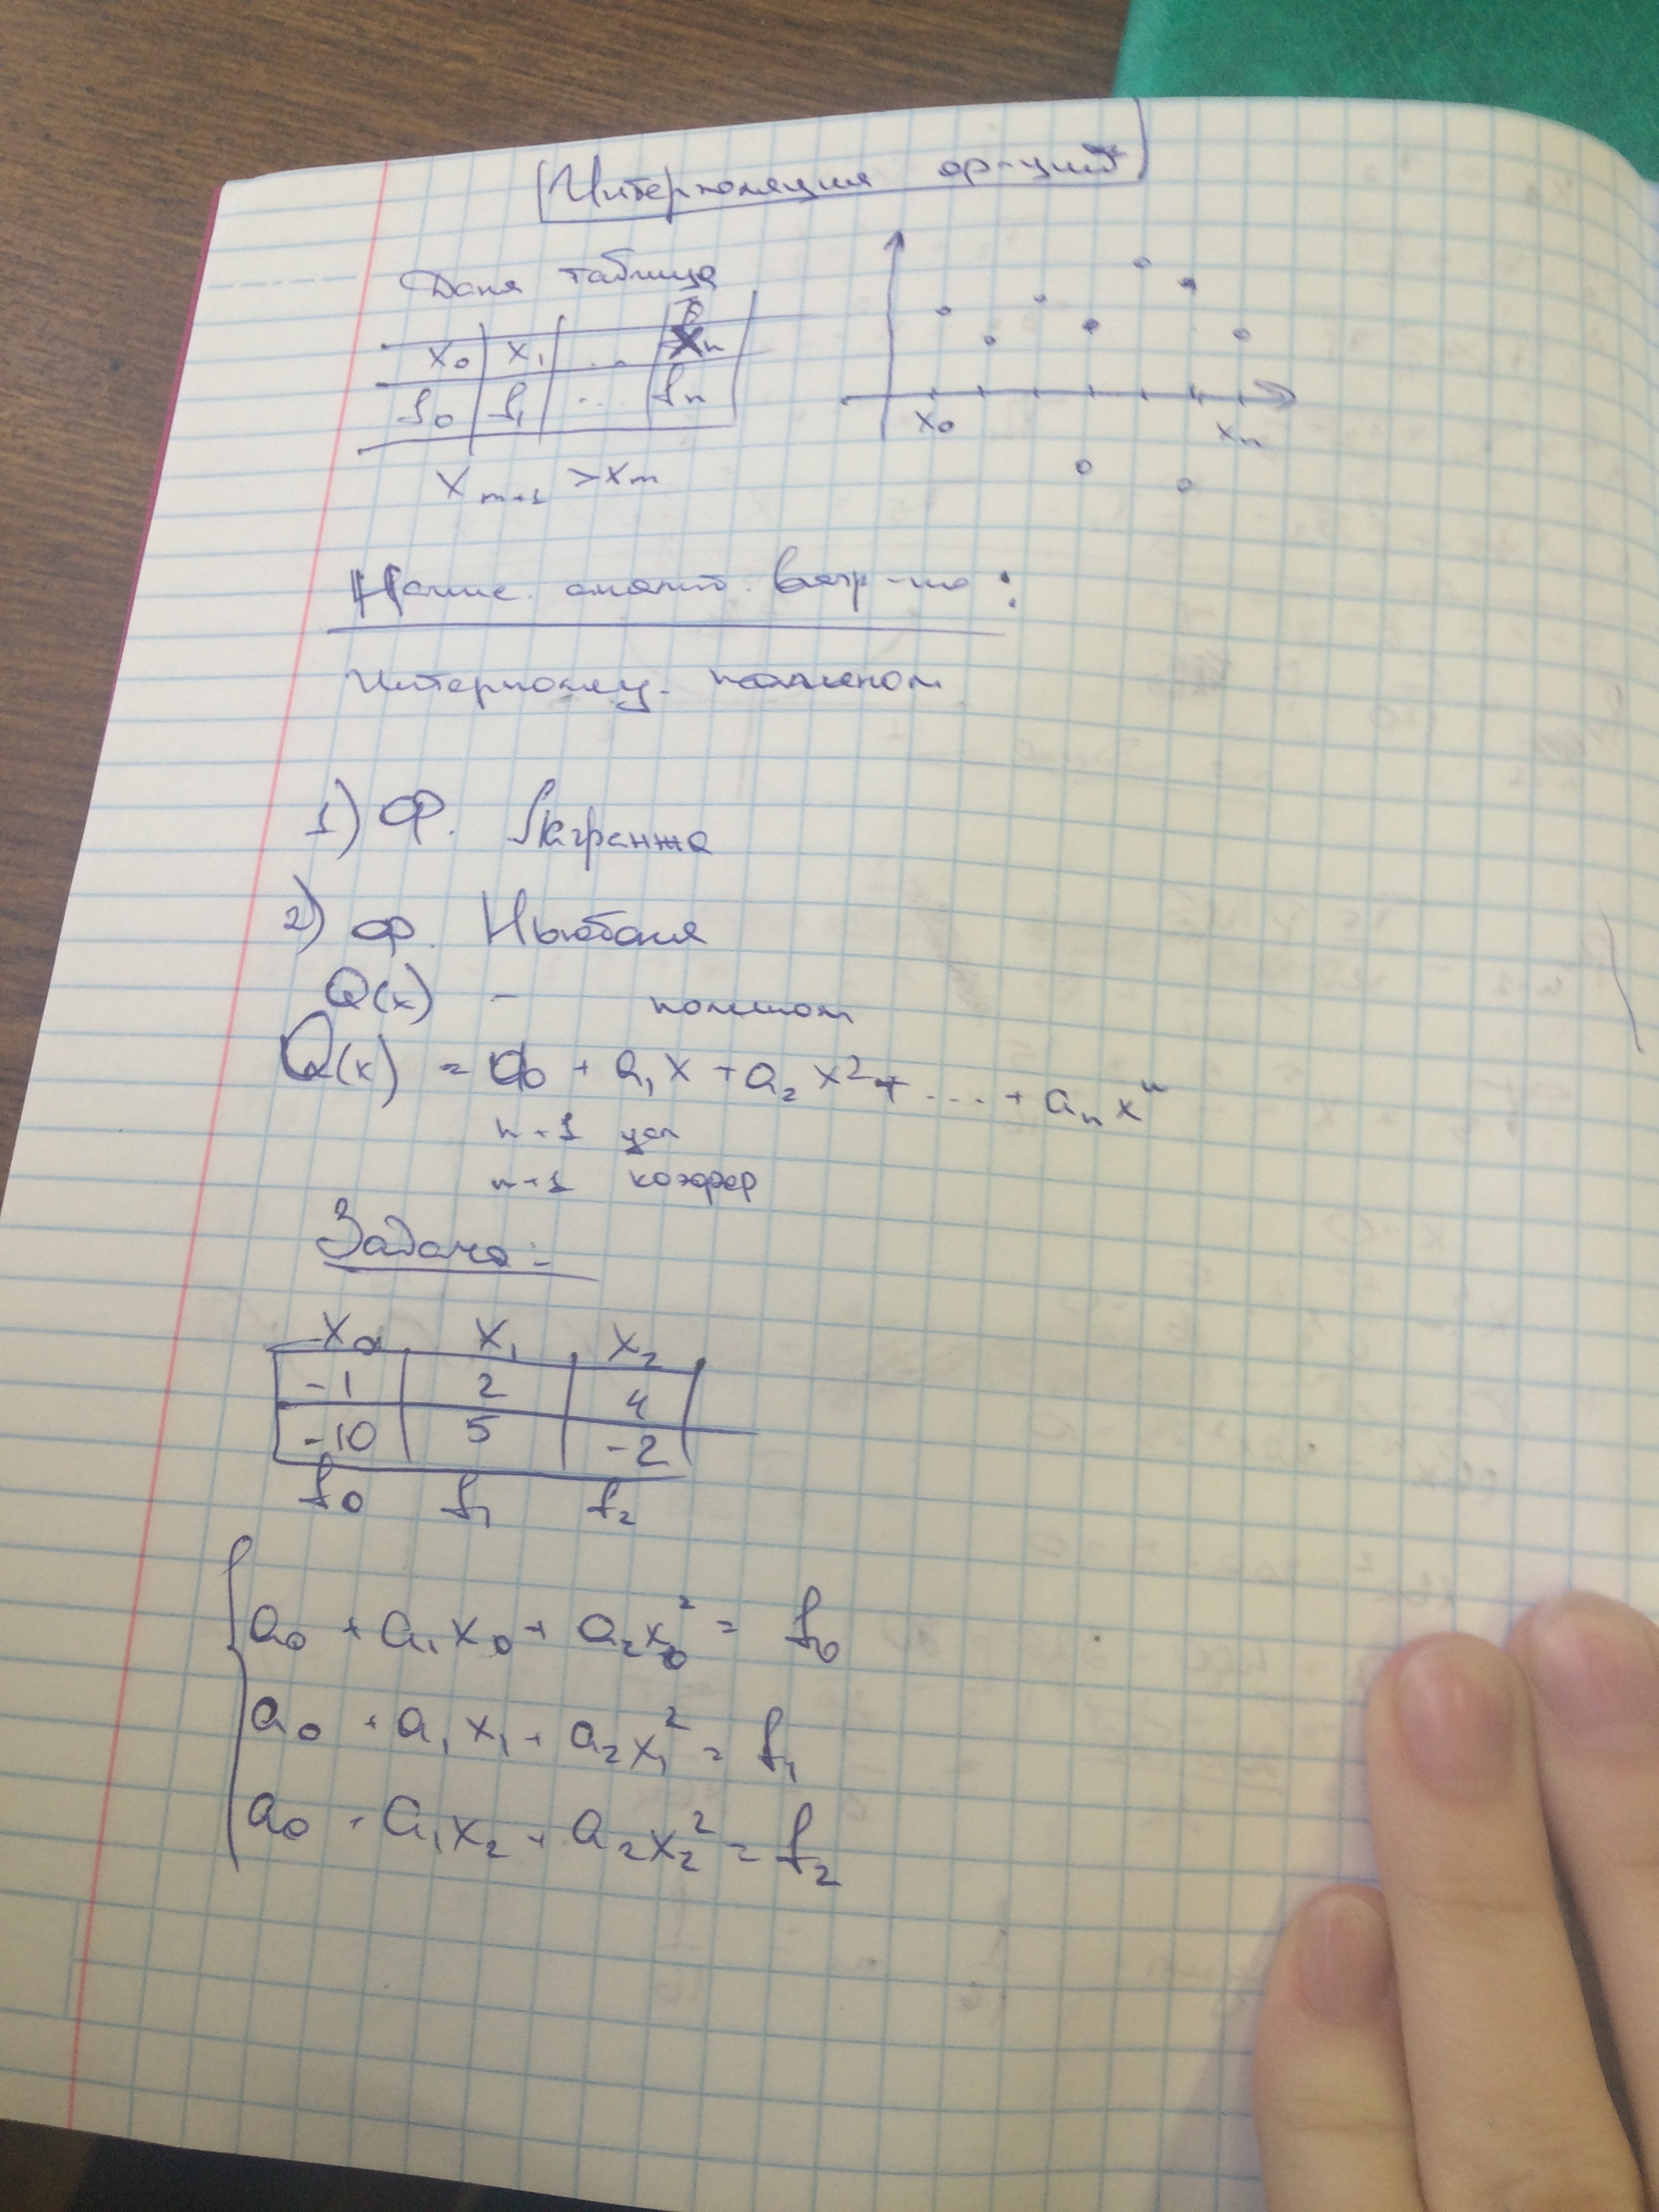 Интерполяция ф-ций
Дана таблица
x₀ x₁ ... xₙ
f₀ f₁ ... fₙ
x₀ xₙ
xₘ₊₁ > xₘ
Интерполяц. полином
1) Ф. Лагранжа
2) ф. Ньютона
Q(x) - полином
Q(x) = a₀ + a₁x + a₂x² + .... + aₙxⁿ
n+1 усл
n+1 коэффф
Задача:
x₀ x₁ x₂
-1 2 4
-10 5 -2
f₀ f₁ f₂
a₀ + a₁x₀ + a₂x₀² = f₀
a₀ + a₁x₁ + a₂x₁² = f₁
a₀ + a₁x₂ + a₂x₂² = f₂